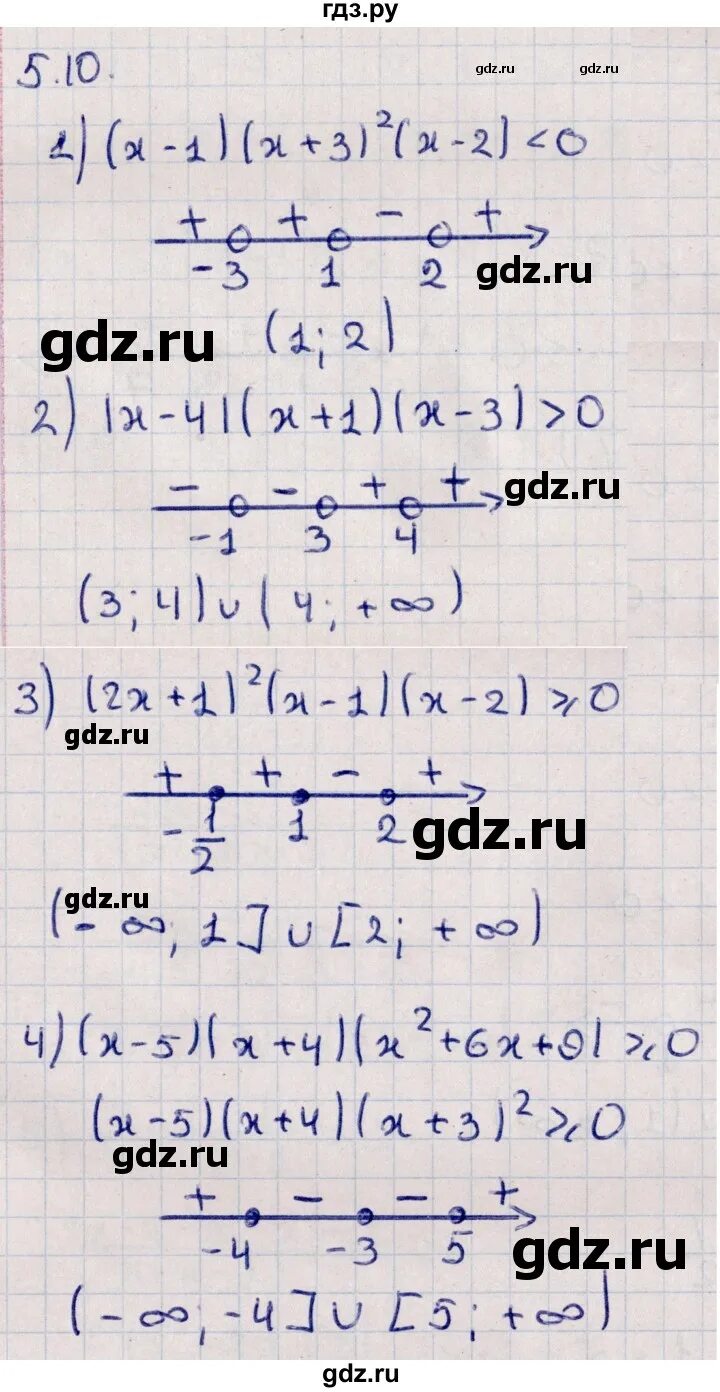 гдз.ру
5.10.
gdz.ru gdz.ru
1) (x-1)(x+3)²(x-2)<0
+ + - +
-3 1 2 gdz.ru
gdz.ru (1; 2)
2) |x-4|(x+1)(x-3)>0
- - + + gdz.ru
-1 3 4
(3; 4)∪(4; +∞)
3) (2x+1)²(x-1)(x-2)⩾0
gdz.ru
+ + - +
-1/2 1 2 gdz.ru
gdz.ru
(-∞; 1]∪[2; +∞)
4) (x-5)(x+4)(x²+6x+9)⩾0
(x-5)(x+4)(x+3)²⩾0
gdz.ru
+ - - +
-4 -3 5 gdz.ru
(-∞; -4]∪[5; +∞)
gdz.ru